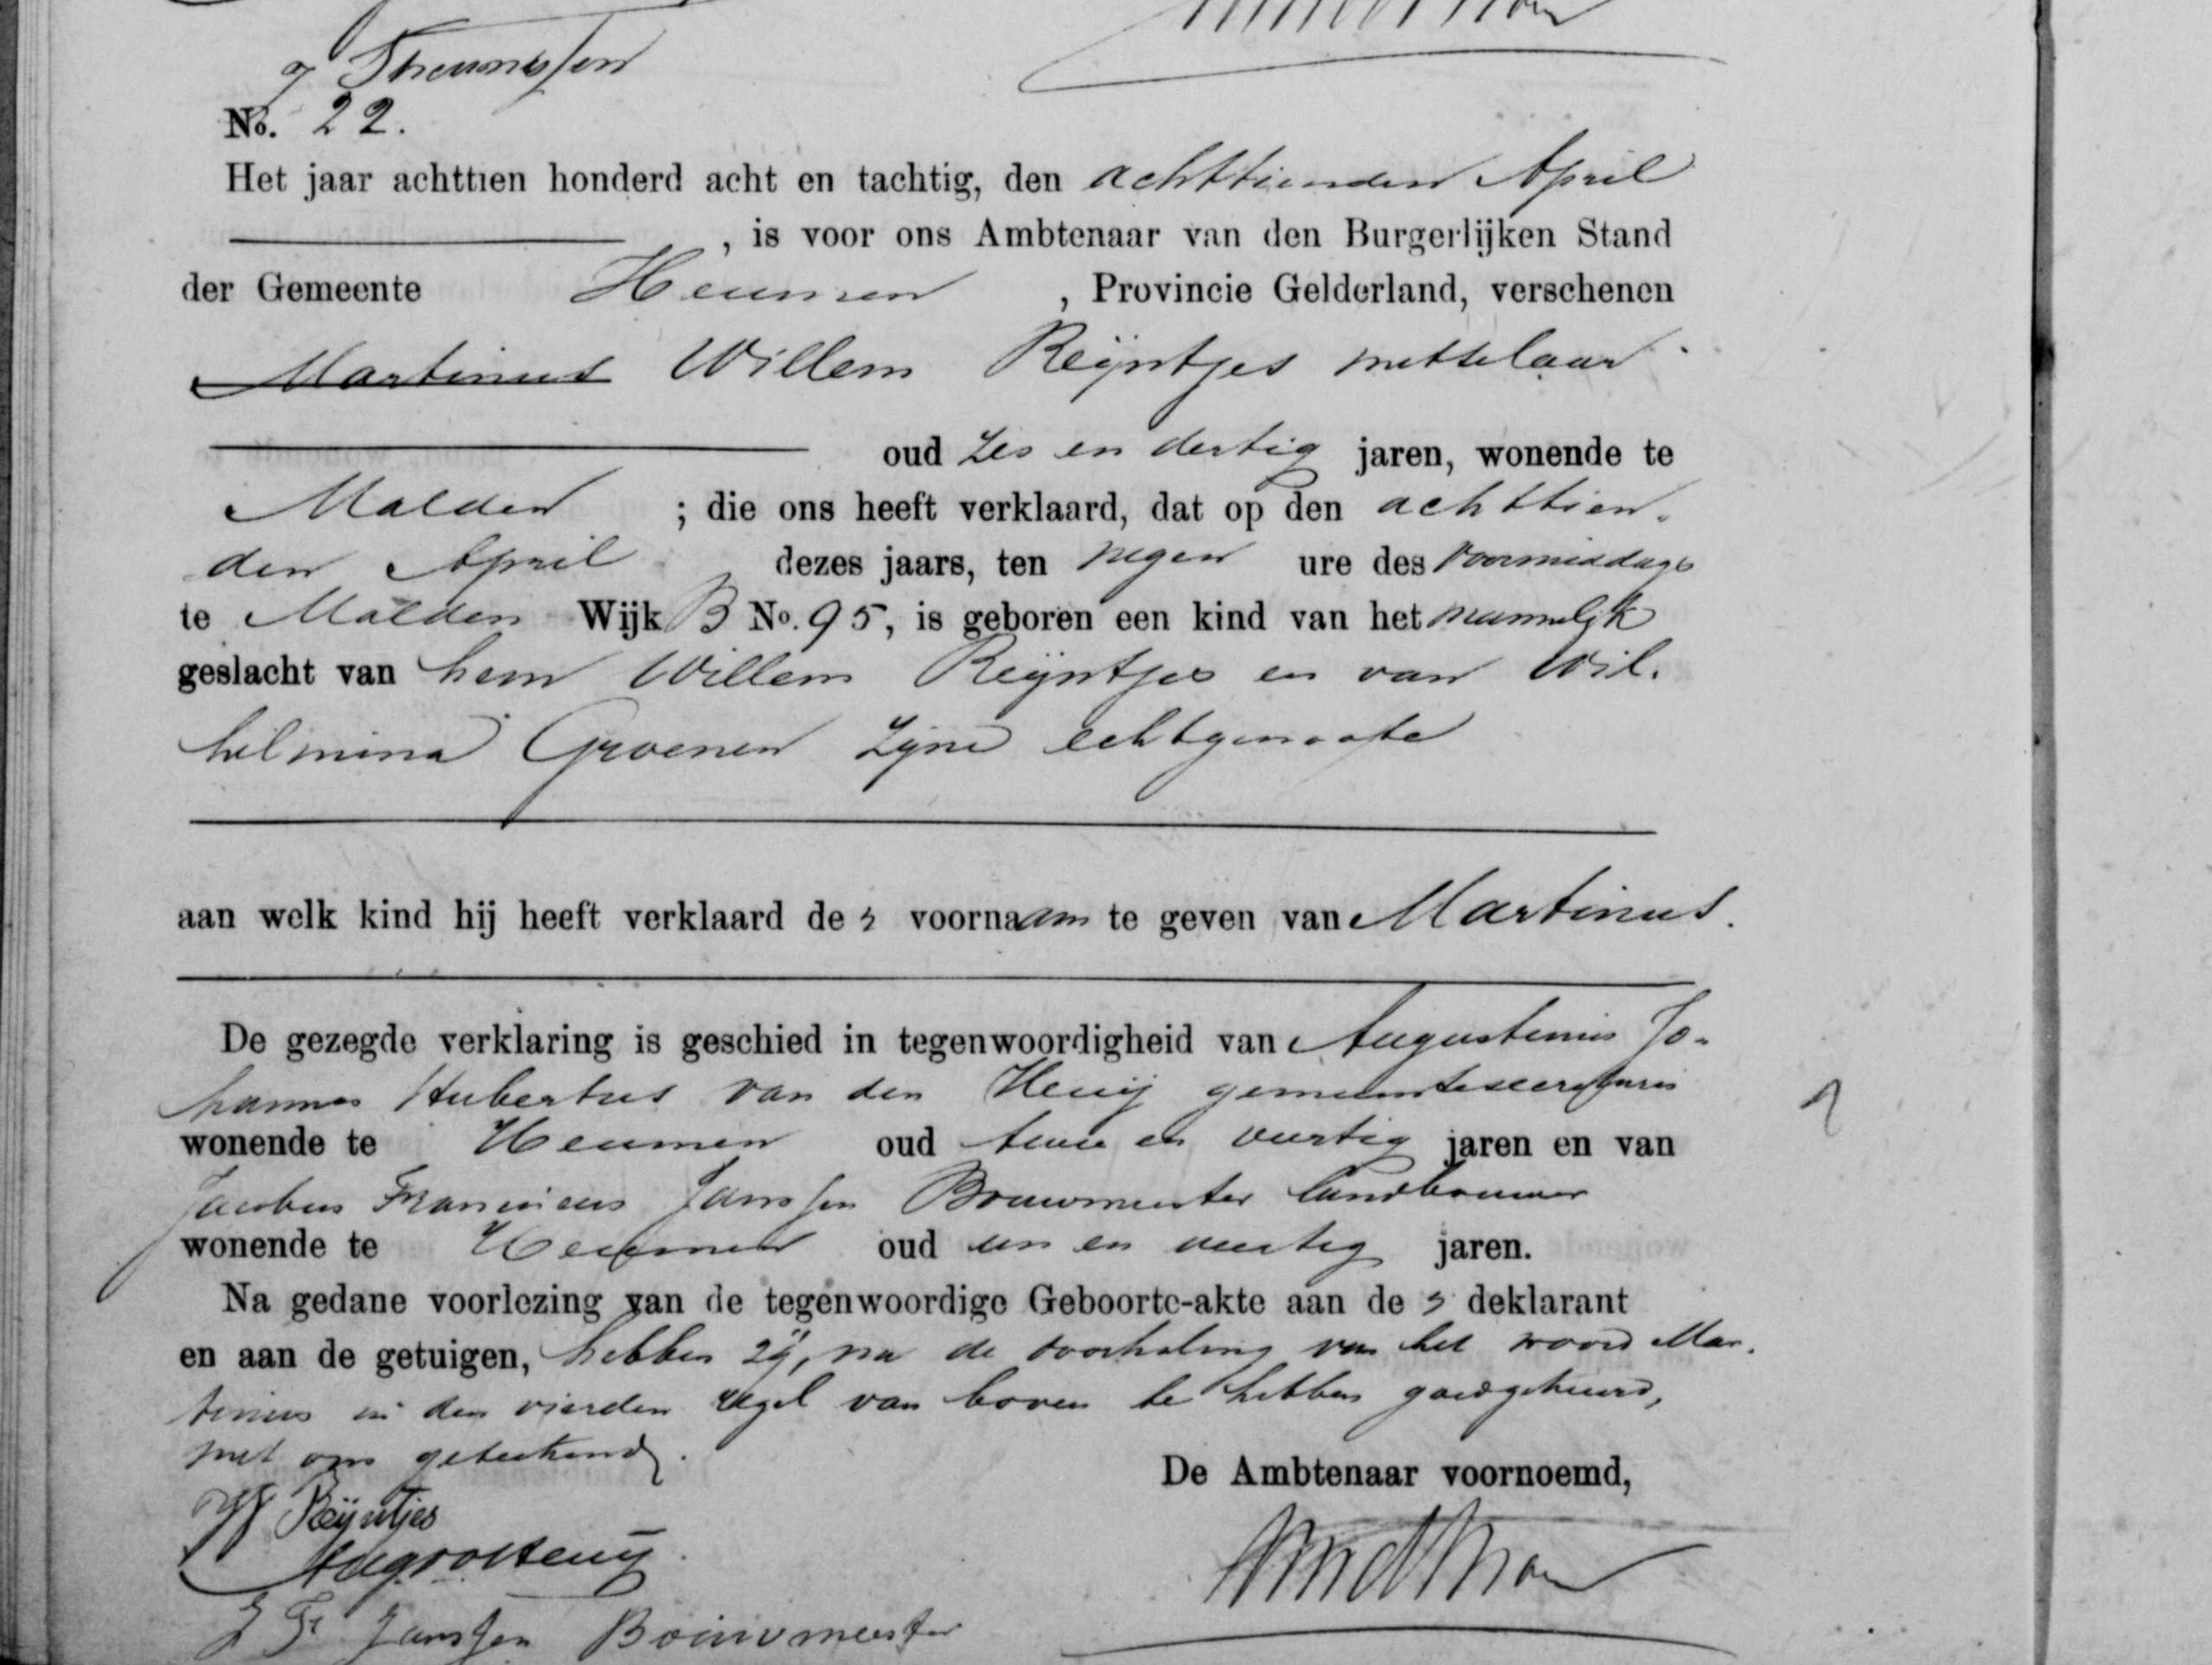 J Theunissen
No. 22.
Het jaar achttien honderd acht en tachtig, den achttienden April
, is voor ons Ambtenaar van den Burgerlijken Stand
der Gemeente Heumen , Provincie Gelderland, verschenen
Martinus Willem Reijntjes metselaar
oud zes en dertig jaren, wonende te
Malden ; die ons heeft verklaard, dat op den achttien-
den April dezes jaars, ten negen ure des voormiddags
te Malden Wijk B No. 95, is geboren een kind van het mannelijk
geslacht van hem Willem Reijntjes en van Wil-
helmina Groenen zijne echtgenoote
aan welk kind hij heeft verklaard de s voornaam te geven van Martinus.
De gezegde verklaring is geschied in tegenwoordigheid van Augustinus Jo-
hannes Hubertus van den Heuij gemeentesecretaris
wonende te Heumen oud twee en veertig jaren en van
Jacobus Franciscus Janssen Bouwmeester landbouwer
wonende te Heumen oud een en veertig jaren.
Na gedane voorlezing van de tegenwoordige Geboorte-akte aan de s deklarant
en aan de getuigen, hebben zij, na de doorhaling van het woord Mar-
tinus in den vierden regel van boven te hebben goedgekeurd,
met ons geteekend.
De Ambtenaar voornoemd,
W Reijntjes
J F Janssen Bouwmeester